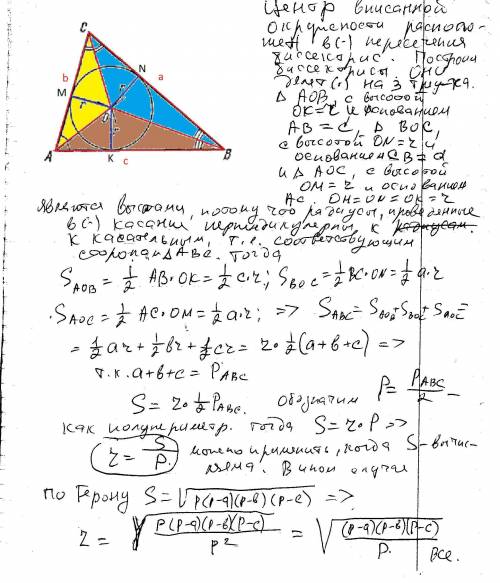 Центр вписанной
окружности располо-
жен в (·) пересечения
биссектрис. Построим
биссектрисы. Они
делят (·) на 3 тр-ка.
Δ AOB, с высотой
OK = r и основанием
AB = C, Δ BOC,
с высотой ON = r и
основанием CB = a
и Δ AOC, с высотой
OM = r и основанием
AC, OH = ON = OK = r
C
b
N
a
M
r
A
K
c
B
являются высотами, потому что радиусы, проведенные
в (·) касания перпендикулярны к радиусам.
к касательным, т.е. соответствующим
сторонам ΔABC. Тогда
S_AOB = 1/2 AB·OK = 1/2 c·r; S_BOC = 1/2 BC·ON = 1/2 a·r
S_AOC = 1/2 AC·OM = 1/2 a·r; => S_ABC = S_AOB + S_BOC + S_AOC =
= 1/2 ar + 1/2 br + 1/2 cr = r·1/2 (a+b+c) =>
т.к. a+b+c = P_ABC
S = r·1/2 P_ABC. Обозначим P = P_ABC/2 –
как полупериметр. Тогда S = r·P =>
r = S/P. можно применить, когда S – вычис-
лена. В ином случае
по Герону S = √(p(p-a)(p-b)(p-c)) =>
r = √(p(p-a)(p-b)(p-c)/p²) = √((p-a)(p-b)(p-c)/p) все.